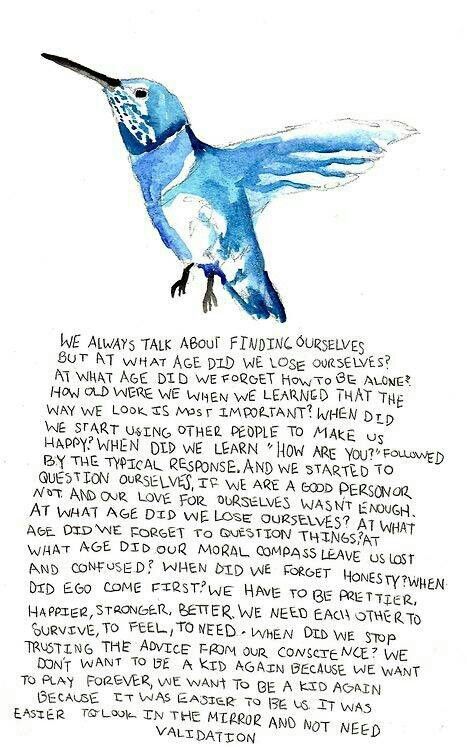 WE ALWAYS TALK ABOUT FINDING OURSELVES
BUT AT WHAT AGE DID WE LOSE OURSELVES?
AT WHAT AGE DID WE FORGET HOW TO BE ALONE?
HOW OLD WERE WE WHEN WE LEARNED THAT THE
WAY WE LOOK IS MOST IMPORTANT? WHEN DID
WE START USING OTHER PEOPLE TO MAKE US
HAPPY? WHEN DID WE LEARN "HOW ARE YOU?" FOLLOWED
BY THE TYPICAL RESPONSE. AND WE STARTED TO
QUESTION OURSELVES, IF WE ARE A GOOD PERSON OR
NOT AND OUR LOVE FOR OURSELVES WASNT ENOUGH.
AT WHAT AGE DID WE LOSE OURSELVES? AT WHAT
AGE DID WE FORGET TO QUESTION THINGS? AT
WHAT AGE DID OUR MORAL COMPASS LEAVE US LOST
AND CONFUSED? WHEN DID WE FORGET HONESTY? WHEN
DID EGO COME FIRST? WE HAVE TO BE PRETTIER,
HAPPIER, STRONGER, BETTER. WE NEED EACH OTHER TO
SURVIVE, TO FEEL, TO NEED. WHEN DID WE STOP
TRUSTING THE ADVICE FROM OUR CONSCIENCE? WE
DON'T WANT TO BE A KID AGAIN BECAUSE WE WANT
TO PLAY FOREVER, WE WANT TO BE A KID AGAIN
BECAUSE IT WAS EASIER TO BE US. IT WAS
EASIER TO LOOK IN THE MIRROR AND NOT NEED
VALIDATION